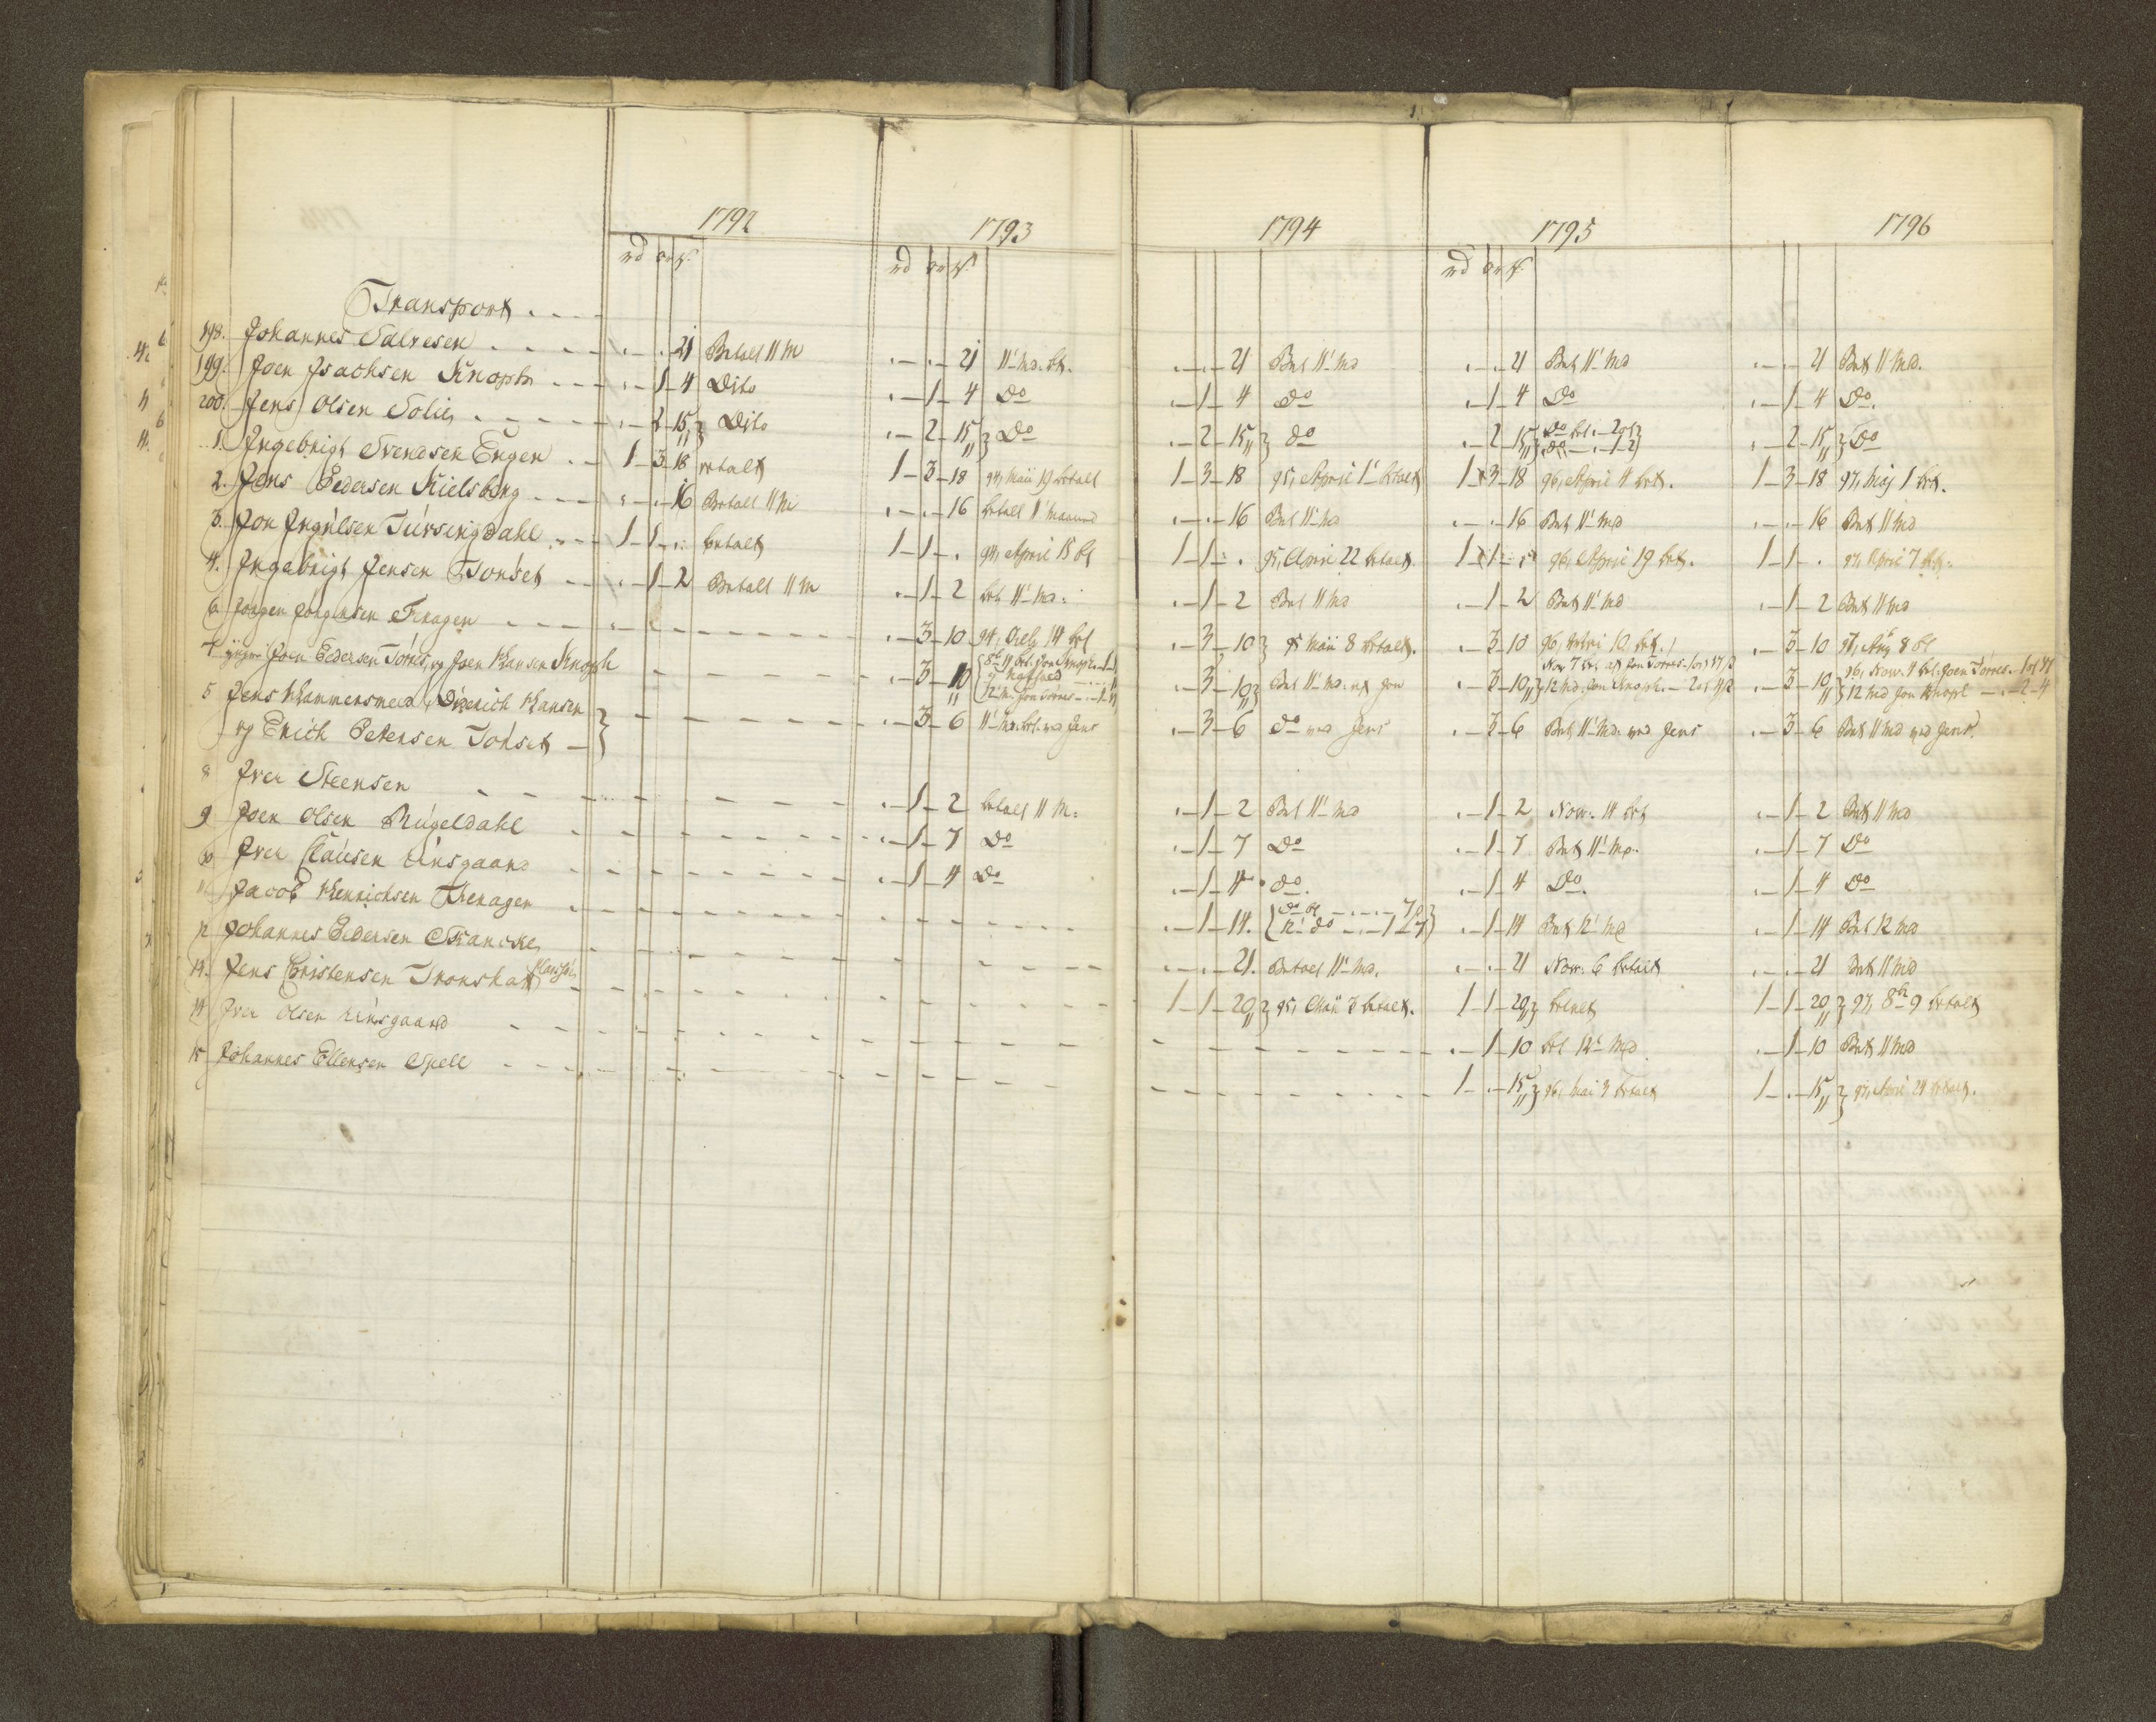 1792 1793 1794 1795 1796
rd or s. rd or s. rd or s.
Transport . . . .
198. Johannes Salvesen . . . . 21 Betalt 11 M . - . - 21 11te Md. bt. . - . - 21 Bet 11te Md . - . - 21 Bet 11te Md . - . - 21 Bet 11 Md.
199. Joen Isachsen Knoph . . - 1 - 4 Dito . - 1 - 4 Do . - 1 - 4 do . - 1 - 4 Do . - 1 - 4 Do.
200. Jens Olsen Solie . . - 2 - 15 Dito . - 2 - 15 } Do . - 2 - 15 } do . - 2 - 15 } . - 2 - 15 } Do
1. Ingebrigt Svendsen Engen . . 1 - 3 - 18 betalt 1 - 3 - 18 94, Maii 19 betalt 1 - 3 - 18 95, April 1te betalt 1 - 3 - 18 96, April 4 bet. 1 - 3 - 18 97, Maj 1 bet.
2. Jens Pedersen Kielsberg . . . - . - 16 Betalt 11 M . - . - 16 betalt 11te Maaned . - . - 16 Bet 11te Md . - . - 16 Bet 11te Md . - . - 16 Bet 11 Md
3. Jon Ingulsen Tursingdahl . . 1 - 1 - . betalt 1 - 1 - . 94, April 15 bt 1 - 1 - . 95, April 22 betalt. 1 - 1 - . 96, April 19 bet. 1 - 1 - . 97, April 7 bet.
4. Ingebrigt Jensen Tonset . . - 1 - 2 Betalt 11 M . - 1 - 2 bet 11te Md. . - 1 - 2 Bet 11 Md . - 1 - 2 Bet 11te Md . - 1 - 2 Bet 11 Md
6 Jørgen Jørgensen . - 3 - 10 94, 14 bet . - 3 - 10 } 95 Maii 8 betalt. . - 3 - 10 96, 10 bet. . - 3 - 10 97, Aug 8 bt
7 Joen Pedersen Torres, og Joen Hansen Knoph . - 3 - 10 . - 3 - 10 } Bet 11te Md. af Jon . - 3 - 10 } Nov 7 bet af Jon Torres . - 3 - 10 } 96, Nov. 4 bet. Joen Torres
12 Md. Jon Knoph 12 Md Jon Knoph - . - 2 - 4
5 Jens Hammersmed, Diderich Hansen
og Erich Petersen Tonset - } . - 3 - 6 11te Md. bt. ved Jens . - 3 - 6 do ved Jens . - 3 - 6 Bet 11te Md. ved Jens . - 3 - 6 Bet 11 Md ved Jens
8 Iver Steensen . - 1 - 2 betalt 11 M. . - 1 - 2 Bet 11te Md . - 1 - 2 Nov. 4 bet . - 1 - 2 Bet 11 Md
9 Joen Olsen Rugeldahl . - 1 - 7 Do . - 1 - 7 Do . - 1 - 7 Bet 11te Md. . - 1 - 7 Do
10 Iver Clausen Unsgaard . - 1 - 4 Do . - 1 - 4 do. . - 1 - 4 Do. . - 1 - 4 Do
11 Jacob Henrichsen . - 1 - 14. . - 1 - 14 Bet 12te Md . - 1 - 14 Bet 12 Md
12 Johannes Pedersen . - . - 21. Betalt 11te Md. . - . - 21 Nov. 6 betalt . - . - 21 Bet 11 Md
13. Jens Cristensen Tronshart 1 - 1 - 20 } 95, Maii 3 betalt. 1 - 1 - 20 } betalt 1 - 1 - 20 } 97, 8br 9 betalt
14 Iver Olsen Unsgaard . - 1 - 10 bet 12te Md . - 1 - 10 Bet 11 Md
15 Johannes Ellensen Spell 1 - . - 15 } 96, Mai 3 betalt 1 - . - 15 } 97, April 24 betalt.